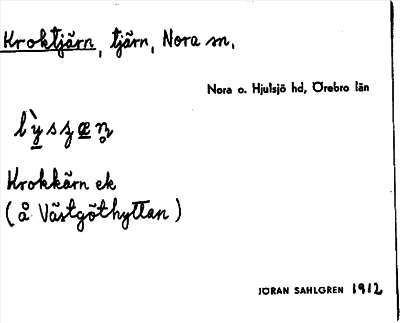 Kroktjärn, tjärn, Nora sn.
Nora o. Hjulsjö hd, Örebro län
Krokkärn ek
(å Västgöthyttan)
JÖRAN SAHLGREN 1912